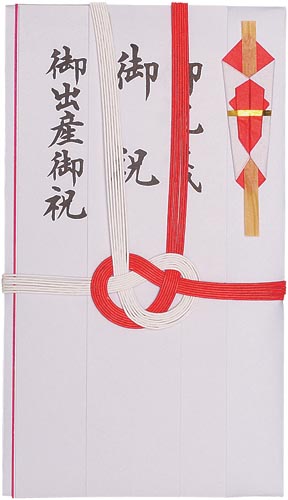 御祝
御出産御祝